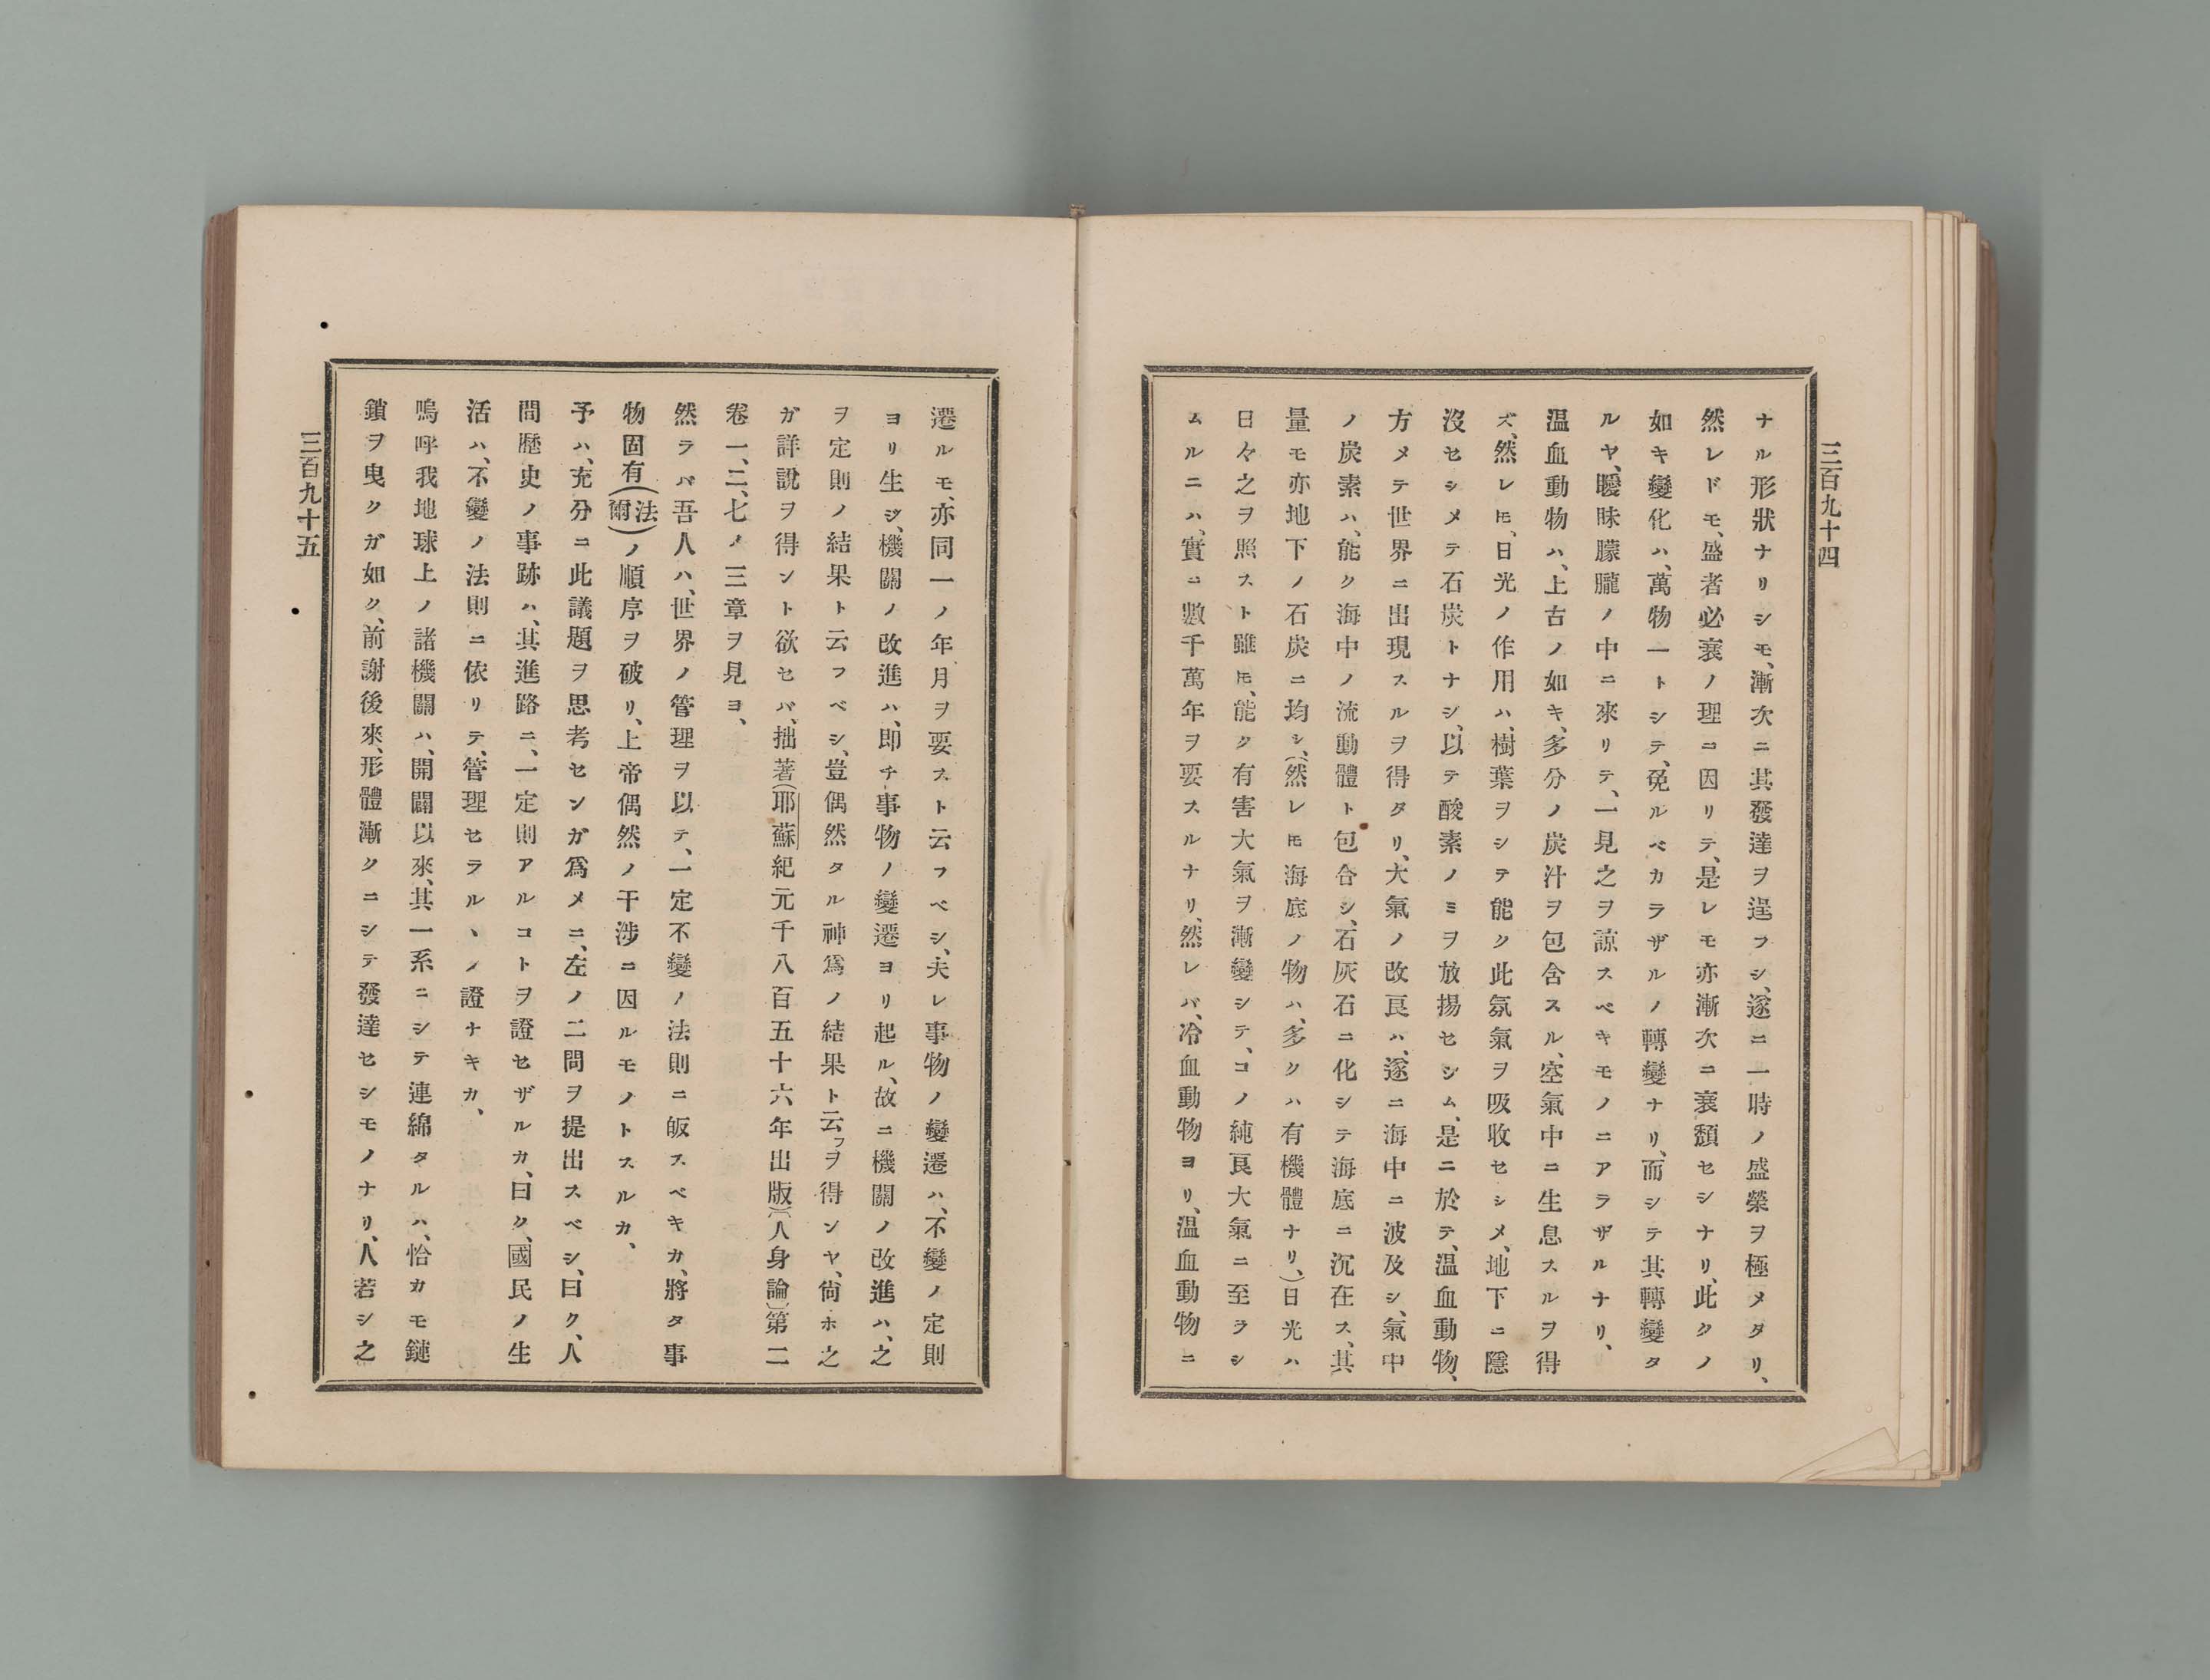 三百九十四
ナル形狀ナリシモ、漸次ニ其發達ヲ逞フシ、遂ニ一時ノ盛榮ヲ極メタリ、
然レドモ、盛者必衰ノ理ニ因リテ、是レモ亦漸次ニ衰頽セシナリ、此クノ
如キ變化ハ、萬物一トシテ、免ルベカラザルノ轉變ナリ、而シテ其轉變タ
ルヤ、曖昧朦朧ノ中ニ來リテ、一見之ヲ諒スベキモノニアラザルナリ、
温血動物ハ、上古ノ如キ、多分ノ炭汁ヲ包含スル、空氣中ニ生息スルヲ得
ズ、然レ𪜈、日光ノ作用ハ、樹葉ヲシテ能ク此氛氣ヲ吸收セシメ、地下ニ隱
沒セシメテ石炭トナシ、以テ酸素ノミヲ放揚セシム、是ニ於テ、温血動物、
方メテ世界ニ出現スルヲ得タリ、大氣ノ改良ハ、遂ニ海中ニ波及シ、氣中
ノ炭素ハ、能ク海中ノ流動體ト包合シ、石灰石ニ化シテ海底ニ沉在ス、其
量モ亦地下ノ石炭ニ均シ、(然レ𪜈海底ノ物ハ、多クハ有機體ナリ、)日光ハ
日々之ヲ照スト雖𪜈、能ク有害大氣ヲ漸變シテ、コノ純良大氣ニ至ラシ
ムルニハ、實ニ數千萬年ヲ要スルナリ、然レバ、冷血動物ヨリ、温血動物ニ
遷ルモ、亦同一ノ年月ヲ要スト云フベシ、夫レ事物ノ變遷ハ、不變ノ定則
ヨリ生ジ、機關ノ改進ハ、即チ事物ノ變遷ヨリ起ル、故ニ機關ノ改進ハ、之
ヲ定則ノ結果ト云フベシ、豈偶然タル神爲ノ結果ト云フヲ得ンヤ、尙ホ之
ガ詳說ヲ得ント欲セバ、拙著(耶蘇紀元千八百五十六年出版)(人身論)第二
卷一、二、七ノ三章ヲ見ヨ、
然ラバ吾人ハ、世界ノ管理ヲ以テ、一定不變ノ法則ニ皈スベキカ、將タ事
物固有(法爾)ノ順序ヲ破リ、上帝偶然ノ干涉ニ因ルモノトスルカ、
予ハ、充分ニ此議題ヲ思考センガ爲メニ、左ノ二問ヲ提出スベシ、曰ク、人
間歷史ノ事跡ハ、其進路ニ、一定則アルコトヲ證セザルカ、曰ク、國民ノ生
活ハ、不變ノ法則ニ依リテ、管理セラルヽノ證ナキカ、
嗚呼我地球上ノ諸機關ハ、開闢以來、其一系ニシテ連綿タルハ、恰カモ鏈
鎖ヲ曳クガ如ク、前謝後來、形體漸クニシテ發達セシモノナリ、人若シ之
三百九十五